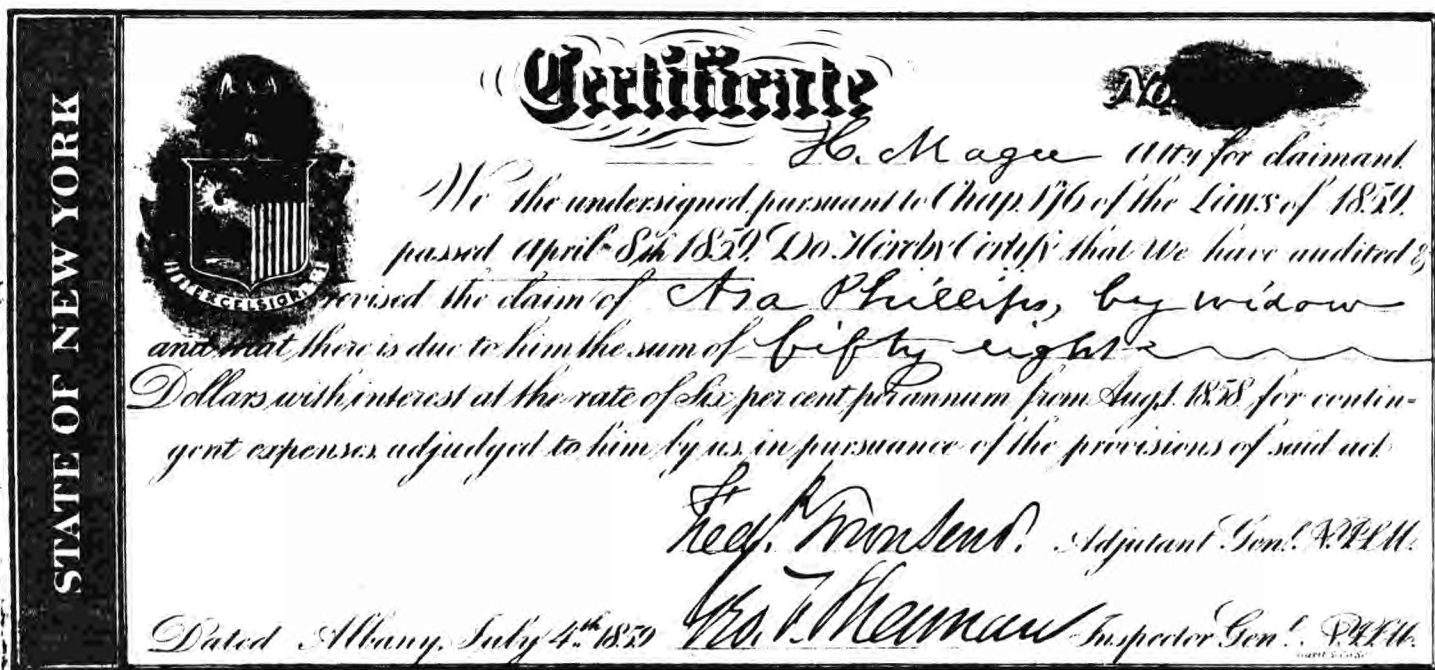 STATE OF NEW YORK
Certificate
No.
H. Magee Atty for claimant.
We the undersigned pursuant to Chap. 176 of the Laws of 1859.
passed April 8th 1859. Do Hereby Certify that We have audited &
revised the claim of Asa Phillips, by widow
EXCELSIOR
and that there is due to him the sum of fifty eight
Dollars with interest at the rate of Six per cent per annum from Aug.1. 1858 for contin=
gent expenses adjudged to him by us in pursuance of the provisions of said act.
Fredk. Townsend. Adjutant Genl.
Dated Albany, July 4th 1859 Inspector Genl.